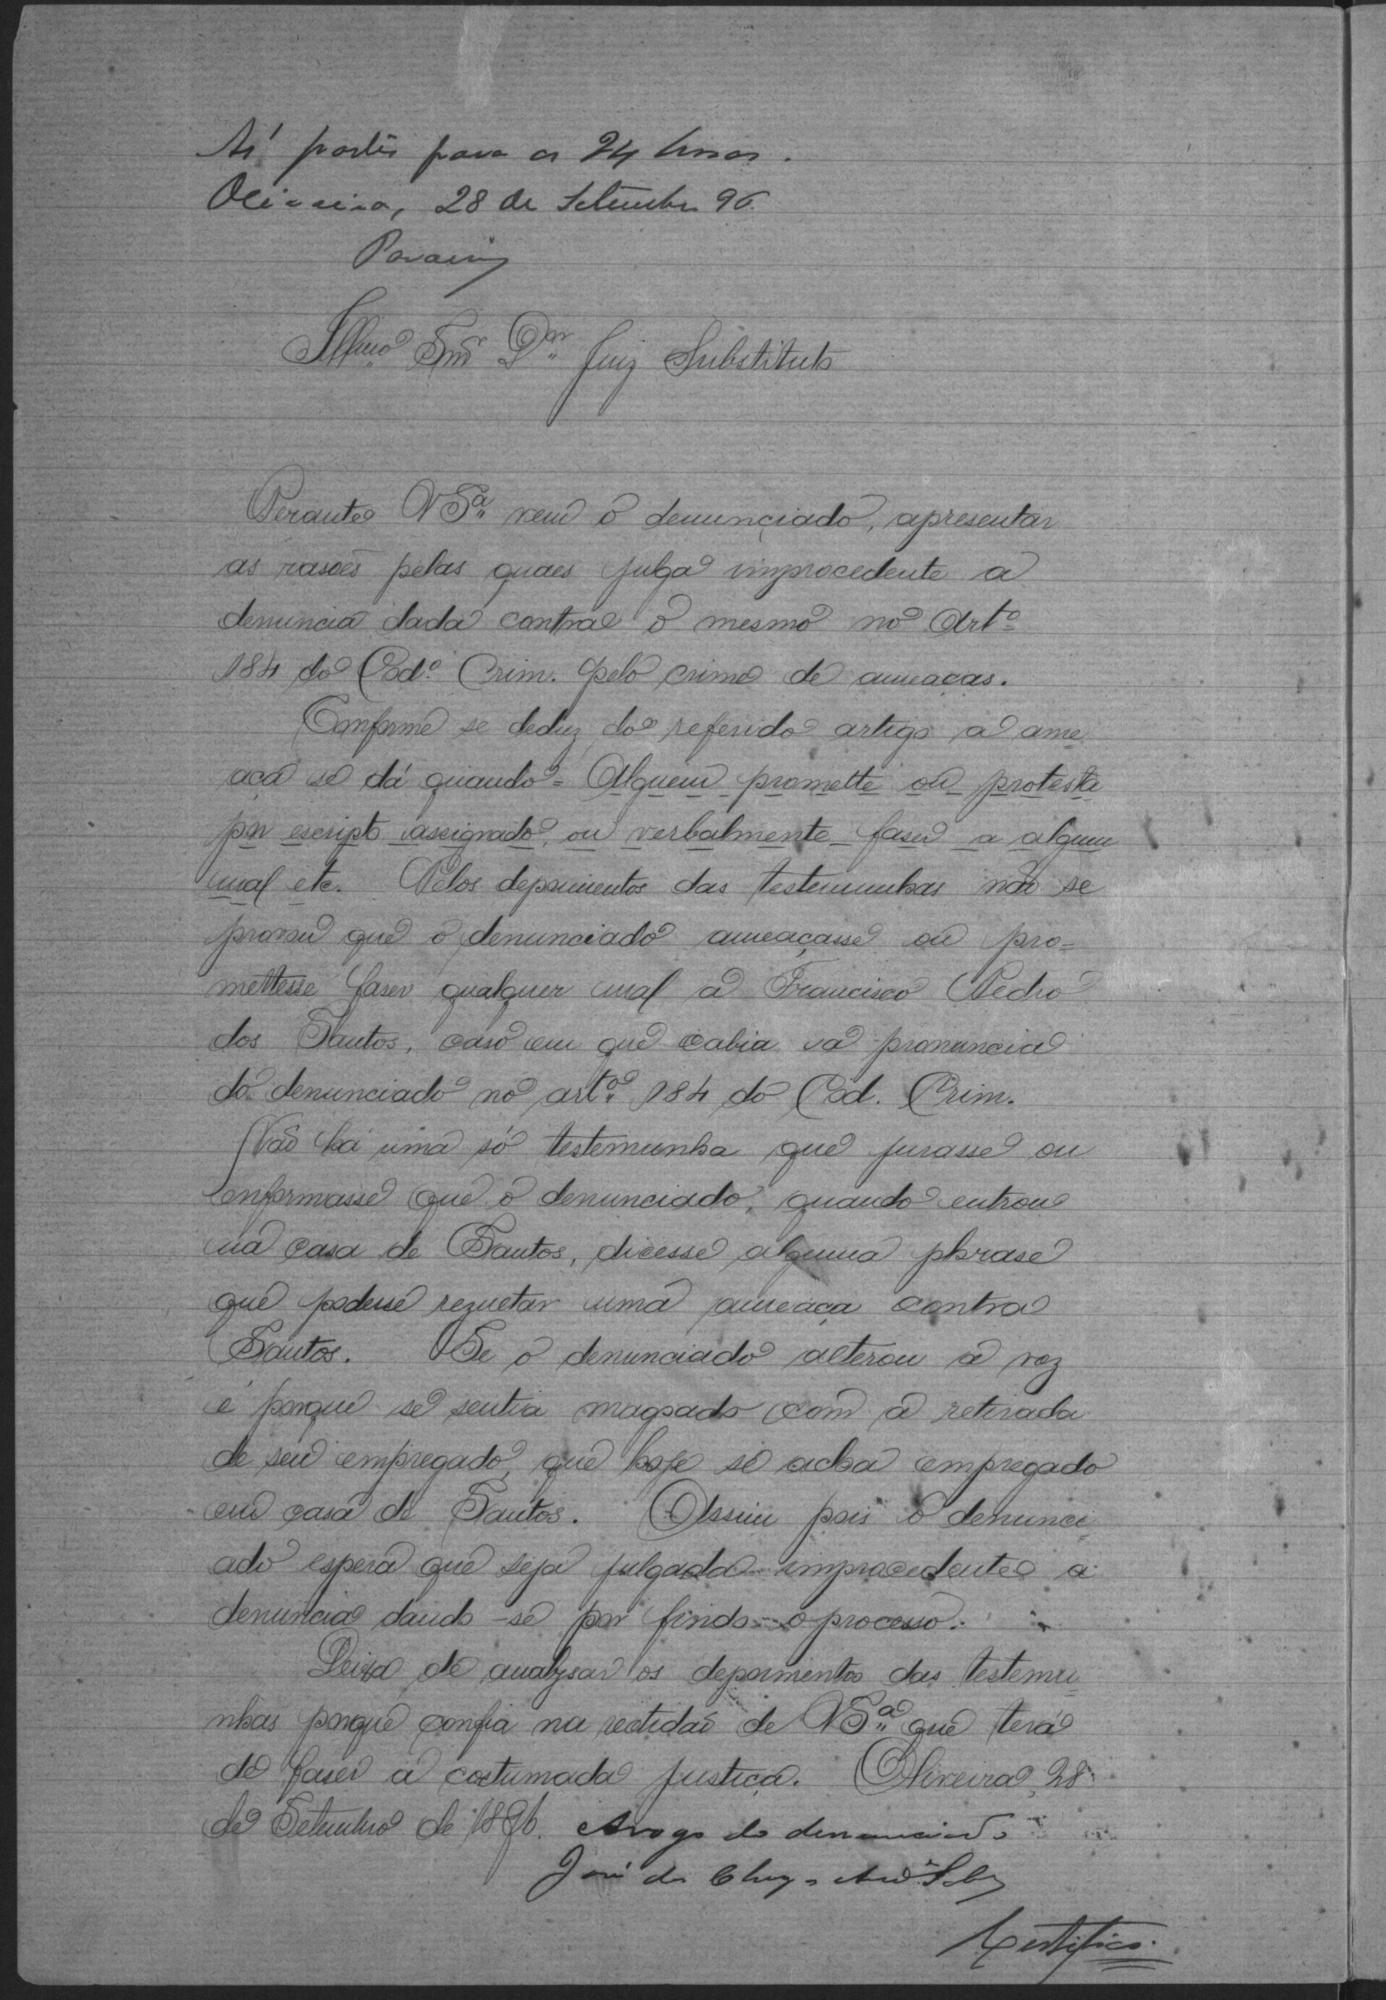 Ás partes para as 24 horas.
Oliveira, 28 de Setembro 96.
Illmo Snr. Dr. Juiz Substituto
Perante VSª vem o denunciado, apresentar
as rasões pelas quaes julga improcedente a
denuncia dada contra o mesmo no Artº
184 do Codº Crim. pelo crime de ameaças.
Conforme se deduz do referido artigo a ame
aça se dá quando = Alguem promette ou protesta
por escripto assignado, ou verbalmente faser a alguem
mal etc. Pelos depoimentos das testemunhas não se
prova que o denunciado ameaçasse ou pro=
mettesse faser qualquer mal a Francisco Pedro
dos Santos, caso em que cabia a pronuncia
do denunciado no artº 184 do Cod. Crim.
Não há uma só testemunha que jurasse ou
informasse que o denunciado, quando entrou
na casa de Santos, dicesse alguma phrase
que podesse rezultar uma ameaça contra
Santos. Se o denunciado alterou a voz
é porque se sentia magoado com a retirada
de seu empregado, que hoje se acha empregado
em casa de Santos. Assim pois o denunci=
ado espera que seja julgada improcedente a
denuncia dando-se por findo o processo.
Deixa de analysar os depoimentos das testemu
nhas porque confia na rectidão de VSª que terá
de faser a costumada justiça. Oliveira, 28
de Setembro de 1896. A rogo do denunciado
José das Chagas
Certifico.